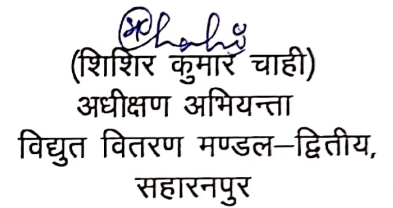 (शिशिर कुमार चाही)
अधीक्षण अभियन्ता
विद्युत वितरण मण्डल–द्वितीय,
सहारनपुर